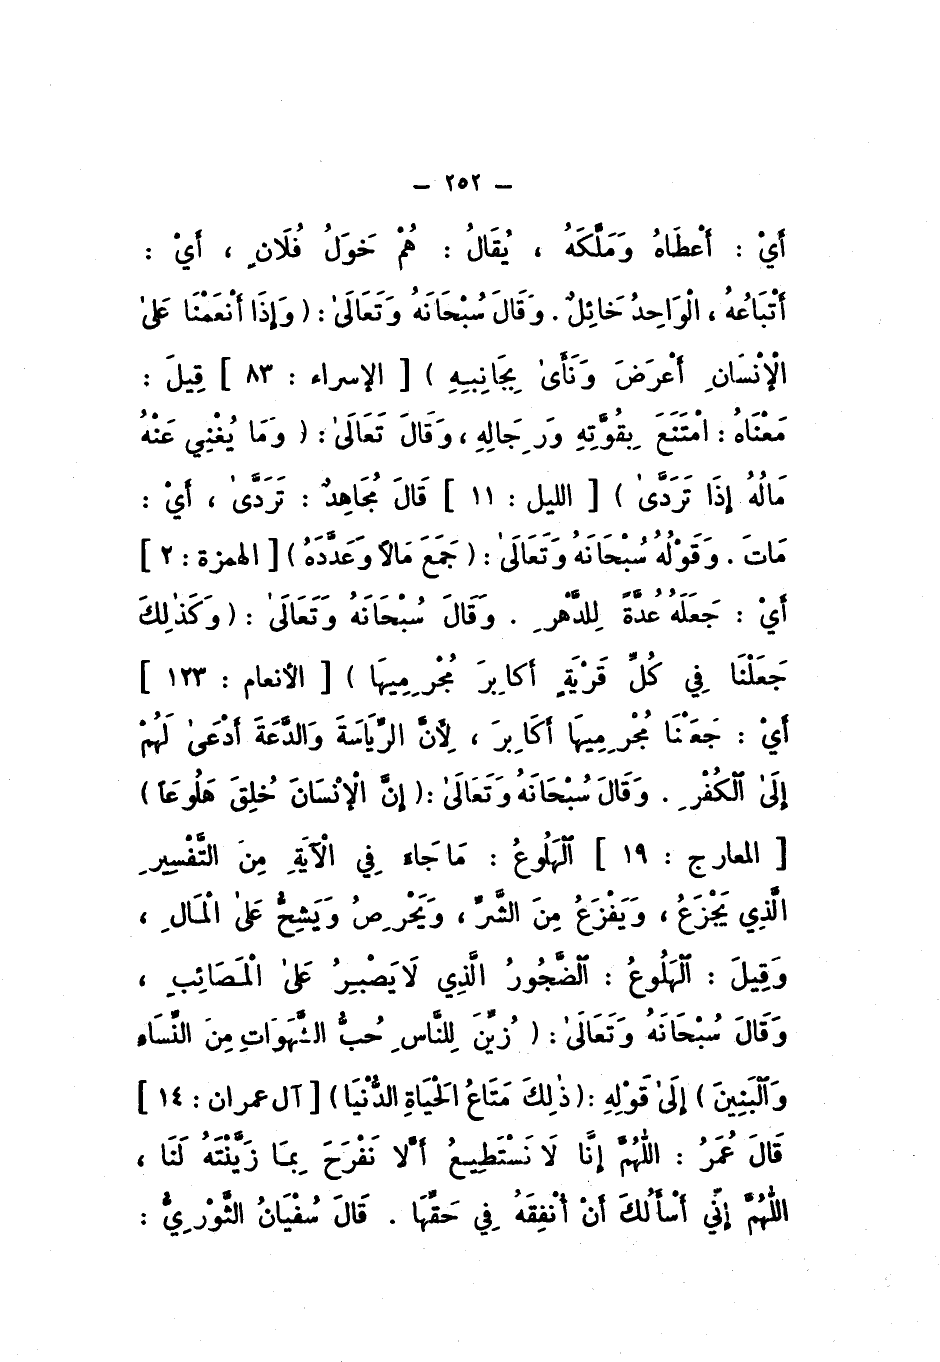 – ٢٥٢ –
أَيْ : أَعْطَاهُ وَمَلَّكَهُ ، يُقَالُ : هُمْ خَوَلُ فُلَانٍ ، أَيْ :
أَتْبَاعُهُ ، الْوَاحِدُ خَائِلٌ . وَقَالَ سُبْحَانَهُ وَتَعَالَىٰ : ( وَإِذَا أَنْعَمْنَا عَلَىٰ
الْإِنْسَانِ أَعْرَضَ وَنَأَىٰ بِجَانِبِهِ ) [ الإسراء : ٨٣ ] قِيلَ :
مَعْنَاهُ : امْتَنَعَ بِقُوَّتِهِ وَرِجَالِهِ ، وَقَالَ تَعَالَىٰ : ( وَمَا يُغْنِي عَنْهُ
مَالُهُ إِذَا تَرَدَّىٰ ) [ الليل : ١١ ] قَالَ مُجَاهِدٌ : تَرَدَّىٰ ، أَيْ :
مَاتَ . وَقَوْلُهُ سُبْحَانَهُ وَتَعَالَىٰ : ( جَمَعَ مَالاً وَعَدَّدَهُ ) [ الهمزة : ٢ ]
أَيْ : جَعَلَهُ عُدَّةً لِلدَّهْرِ . وَقَالَ سُبْحَانَهُ وَتَعَالَىٰ : ( وَكَذٰلِكَ
جَعَلْنَا فِي كُلِّ قَرْيَةٍ أَكَابِرَ مُجْرِمِيهَا ) [ الأنعام : ١٢٣ ]
أَيْ : جَعَنْنَا مُجْرِمِيهَا أَكَابِرَ ، لِأَنَّ الرِّيَاسَةَ وَالدَّعَةَ أَدْعَىٰ لَهُمْ
إِلَىٰ ٱلْكُفْرِ . وَقَالَ سُبْحَانَهُ وَتَعَالَىٰ : ( إِنَّ الْإِنْسَانَ خُلِقَ هَلُوعاً )
[ المعارج : ١٩ ] ٱلْهَلُوعُ : مَا جَاءَ فِي الْآيَةِ مِنَ التَّفْسِيرِ
الَّذِي يَجْزَعُ ، وَيَفْزَعُ مِنَ الشَّرِّ ، وَيَحْرِصُ وَيَشِحُّ عَلَىٰ الْمَالِ ،
وَقِيلَ : ٱلْهَلُوعُ : ٱلضَّجُورُ الَّذِي لَا يَصْبِرُ عَلَىٰ الْمَصَائِبِ ،
وَقَالَ سُبْحَانَهُ وَتَعَالَىٰ : ( زُيِّنَ لِلنَّاسِ حُبُّ الشَّهَوَاتِ مِنَ النِّسَاءِ
وَٱلْبَنِينَ ) إِلَىٰ قَوْلِهِ : ( ذٰلِكَ مَتَاعُ الْحَيَاةِ الدُّنْيَا ) [ آل عمران : ١٤ ]
قَالَ عُمَرُ : اللّٰهُمَّ إِنَّا لَا نَسْتَطِيعُ أَلَّا نَفْرَحَ بِمَا زَيَّنْتَهُ لَنَا ،
اللّٰهُمَّ إِنِّي أَسْأَلُكَ أَنْ أُنْفِقَهُ فِي حَقِّهَا . قَالَ سُفْيَانُ الثَّوْرِيُّ :